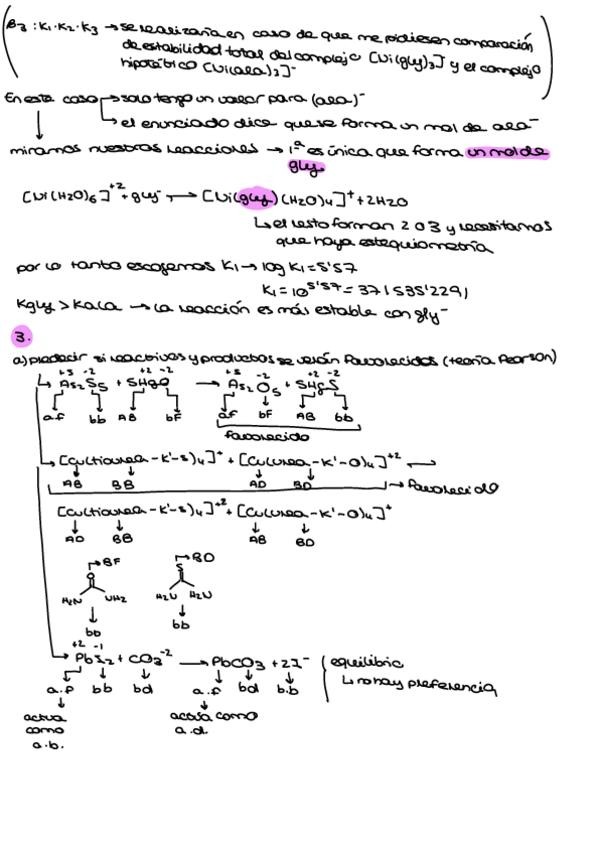 β3 : K1·K2·K3 → se realizaría en caso de que me pidiesen comparación
de estabilidad total del complejo [Ni(gly)3]⁻ y el complejo
hipotético [Ni(ala)3]⁻
En este caso → solo tengo un valor para (ala)⁻
→ el enunciado dice que se forma un mol de ala⁻
miramos nuestras reacciones → 1ª es única que forma un mol de
gly.
[Ni(H2O)6]⁺² + gly⁻ → [Ni(gly)(H2O)4]⁺ + 2H2O
↳ el resto forman 2 o 3 y necesitamos
que haya estequiometría
por lo tanto escogemos K1 → log K1 = 5'57
K1 = 10^5'57 = 371535'2291
Kgly > Kala → la reacción es más estable con gly⁻
3.
a) predecir si reactivos y productos se verán favorecidos (teoría Pearson)
+5 -2 +2 -2 +5 -2 +2 -2
↳ As2S5 + 5HgO → As2O5 + 5HgS
a.f bb AB bF af bF AB bb
favorecido
↳ [Cu(tiourea-K'-S)4]⁺ + [Cu(urea-K'-O)4]⁺² →
AB BB AD BD → Favorecido
[Cu(tiourea-K'-S)4]⁺² + [Cu(urea-K'-O)4]⁺
AD BB AB BD
→ BF → BD
O S
H2N NH2 H2N NH2
bb bb
+2 -1
↳ PbI2 + CO3⁻² → PbCO3 + 2I⁻ equilibrio
a.f bb bd a.f bd b.b ↳ no hay preferencia
actúa como a.b.
actúa como a.d.